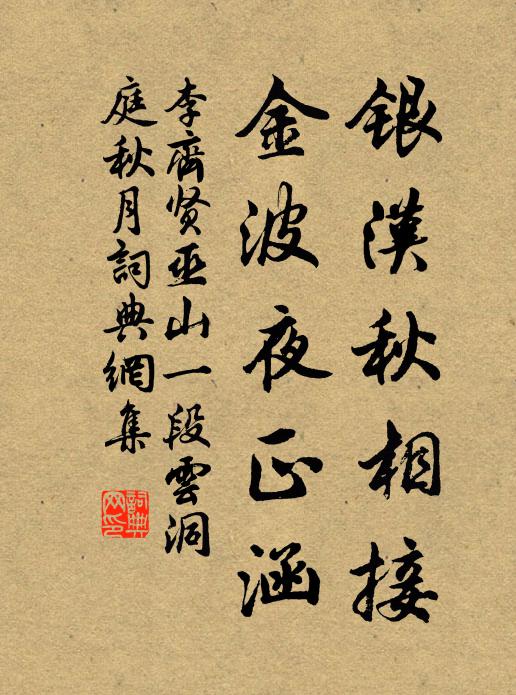 銀漢秋相接
金波夜正涵
李齊贤巫山一段雲洞
庭秋月詞典網集
詞典網印